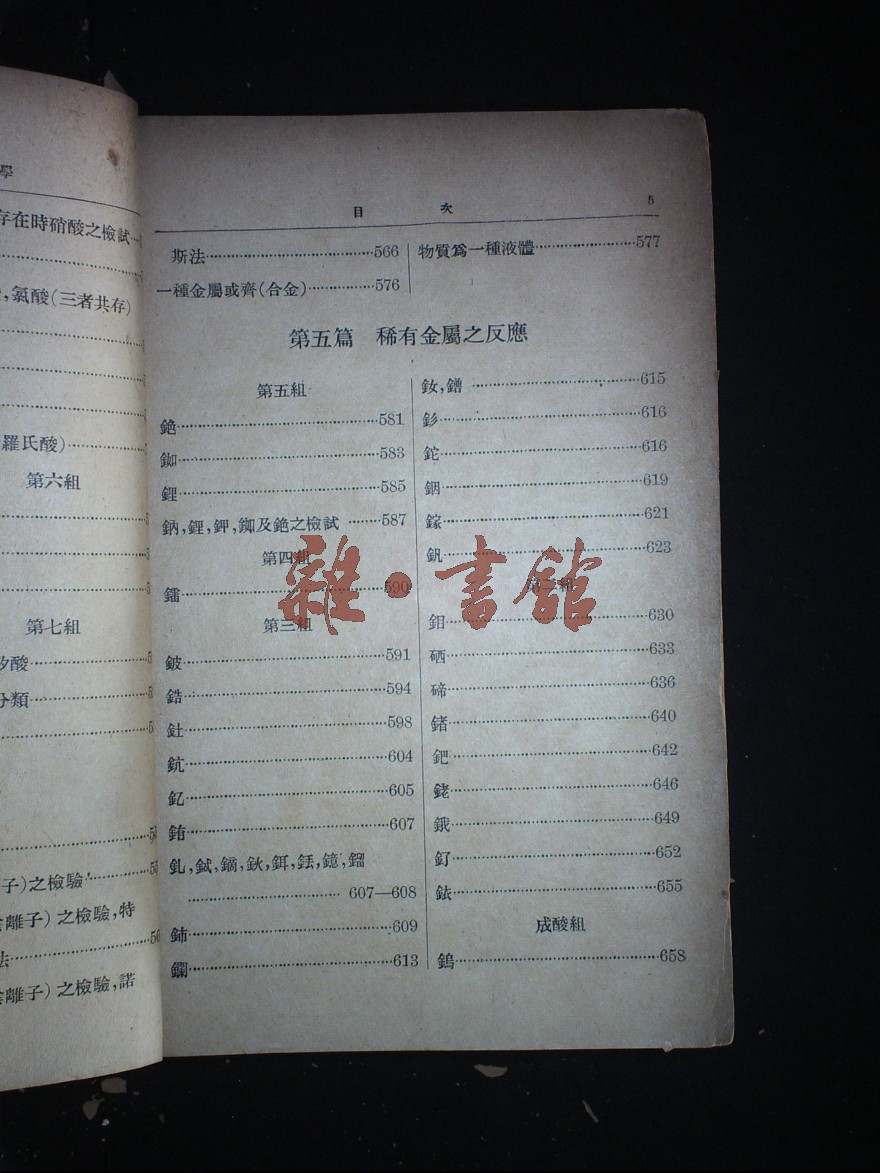 學
存在時硝酸之檢試
氯酸(三者共存)
羅氏酸)
第六組
第七組
矽酸
分類
子)之檢驗
離子)之檢驗,特
法
離子)之檢驗,諾
目 次 5
斯法 566
一種金屬或齊(合金) 576
物質爲一種液體 577
第五篇 稀有金屬之反應
第五組
銫 581
銣 583
鋰 585
鈉,鋰,鉀,銣及銫之檢試 587
第四組
鐳 590
第三組
鈹 591
鋯 594
釷 598
鈧 604
釔 605
銪 607
釓,鋱,鏑,鈥,鉺,銩,鐿,鎦
607—608
鈰 609
鑭 613
釹,鐠 615
釤 616
鉈 616
銦 619
鎵 621
釩 623
第二組
鉬 630
硒 633
碲 636
鍺 640
鈀 642
銠 646
鋨 649
釕 652
銥 655
成酸組
鎢 658
雜·書館